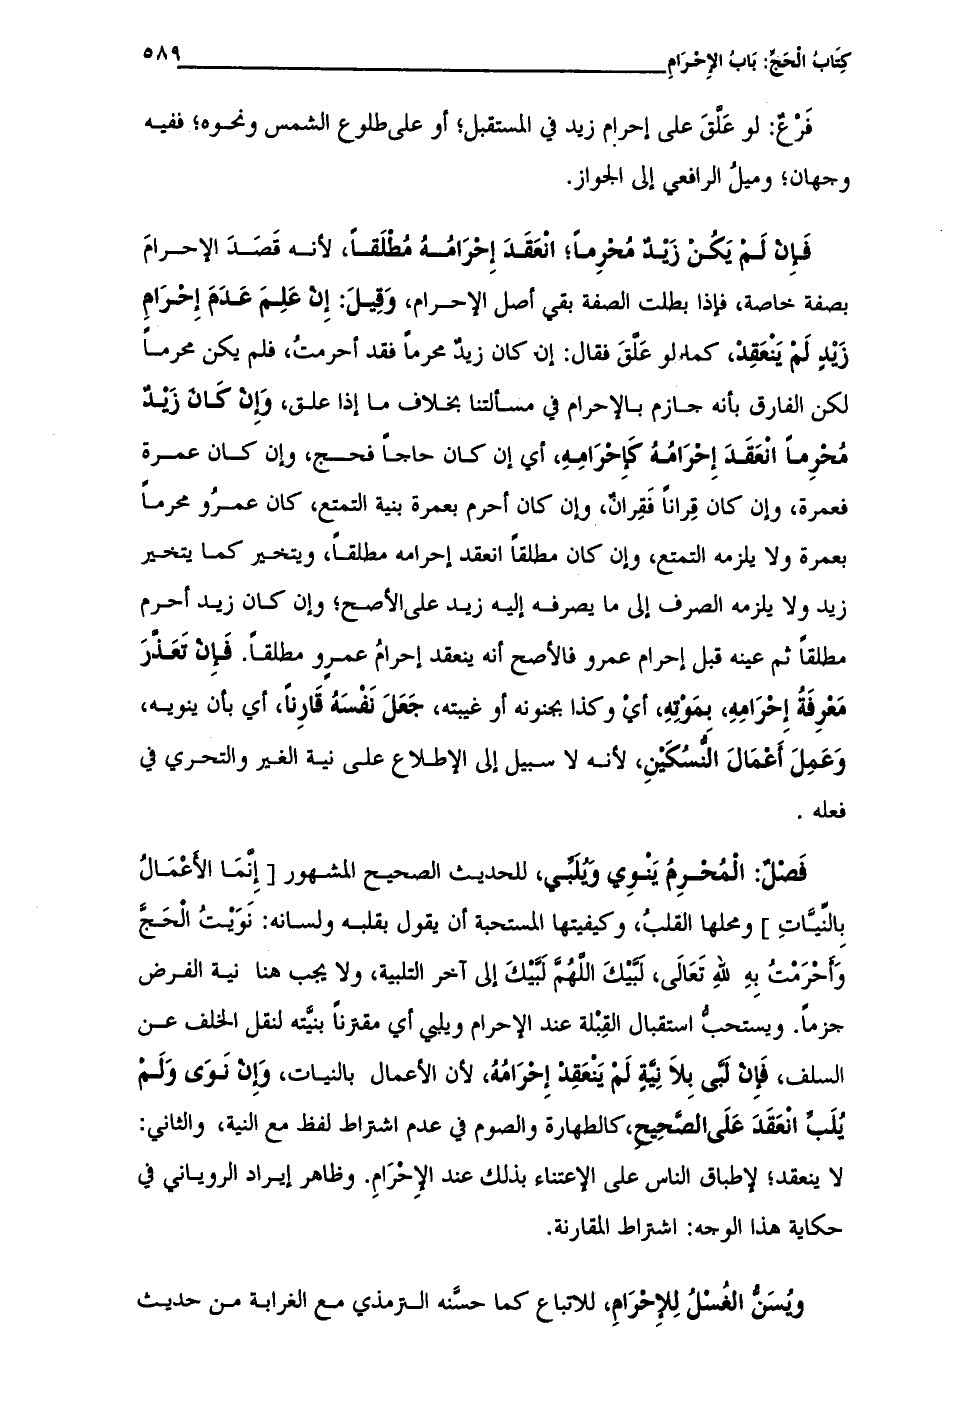 كِتَابُ الْحَجِّ: بَابُ الإِحْرَامِ ٥٨٩
فَرْعٌ: لو عَلَّقَ على إحرام زيد في المستقبل؛ أو على طلوع الشمس ونحوه؛ ففيه
وجهان؛ وميلُ الرافعي إلى الجواز.
فَإِنْ لَمْ يَكُنْ زَيْدٌ مُحْرِماً؛ انْعَقَدَ إِحْرَامُهُ مُطْلَقاً، لأنه قَصَدَ الإحرامَ
بصفة خاصة، فإذا بطلت الصفة بقي أصل الإحرام، وَقِيلَ: إِنْ عَلِمَ عَدَمَ إِحْرَامِ
زَيْدٍ لَمْ يَنْعَقِدْ، كما لو عَلَّقَ فقال: إن كان زيدٌ محرماً فقد أحرمتُ، فلم يكن محرماً
لكن الفارق بأنه جازم بالإحرام في مسألتنا بخلاف ما إذا علق، وَإِنْ كَانَ زَيْدٌ
مُحْرِماً انْعَقَدَ إِحْرَامُهُ كَإِحْرَامِهِ، أي إن كان حاجاً فحج، وإن كان عمرة
فعمرة، وإن كان قِراناً فَقِرانٌ، وإن كان أحرم بعمرة بنية التمتع، كان عمرُو محرماً
بعمرة ولا يلزمه التمتع، وإن كان مطلقاً انعقد إحرامه مطلقاً، ويتخير كما يتخير
زيد ولا يلزمه الصرف إلى ما يصرفه إليه زيد على الأصح؛ وإن كان زيد أحرم
مطلقاً ثم عينه قبل إحرام عمرو فالأصح أنه ينعقد إحرامُ عمرٍو مطلقاً. فَإِنْ تَعَذَّرَ
مَعْرِفَةُ إِحْرَامِهِ، بِمَوْتِهِ، أيْ وكذا بجنونه أو غيبته، جَعَلَ نَفْسَهُ قَارِناً، أي بأن ينويه،
وَعَمِلَ أَعْمَالَ النُّسُكَيْنِ، لأنه لا سبيل إلى الإطلاع على نية الغير والتحري في
فعله .
فَصْلٌ: الْمُحْرِمُ يَنْوِي وَيُلَبِّي، للحديث الصحيح المشهور [ إِنَّمَا الأَعْمَالُ
بِالنِّيَّاتِ ] ومحلها القلبُ، وكيفيتها المستحبة أن يقول بقلبه ولسانه: نَوَيْتُ الْحَجَّ
وَأَحْرَمْتُ بِهِ لِلّهِ تَعَالَى، لَبَّيْكَ اللَّهُمَّ لَبَّيْكَ إلى آخر التلبية، ولا يجب هنا نية الفرض
جزماً. ويستحبُّ استقبال القِبْلة عند الإحرام ويلبي أي مقترناً بنيَّته لنقل الخلف عن
السلف، فَإِنْ لَبَّى بِلاَ نِيَّةٍ لَمْ يَنْعَقِدْ إِحْرَامُهُ، لأن الأعمال بالنيات، وَإِنْ نَوَى وَلَمْ
يُلَبِّ انْعَقَدَ عَلَى الصَّحِيحِ، كالطهارة والصوم في عدم اشتراط لفظ مع النية، والثاني:
لا ينعقد؛ لإطباق الناس على الإعتناء بذلك عند الإِحْرَامِ. وظاهر إيراد الروياني في
حكاية هذا الوجه: اشتراط المقارنة.
ويُسَنُّ الغُسْلُ لِلإِحْرَامِ، للاتباع كما حسَّنه الترمذي مع الغرابة من حديث